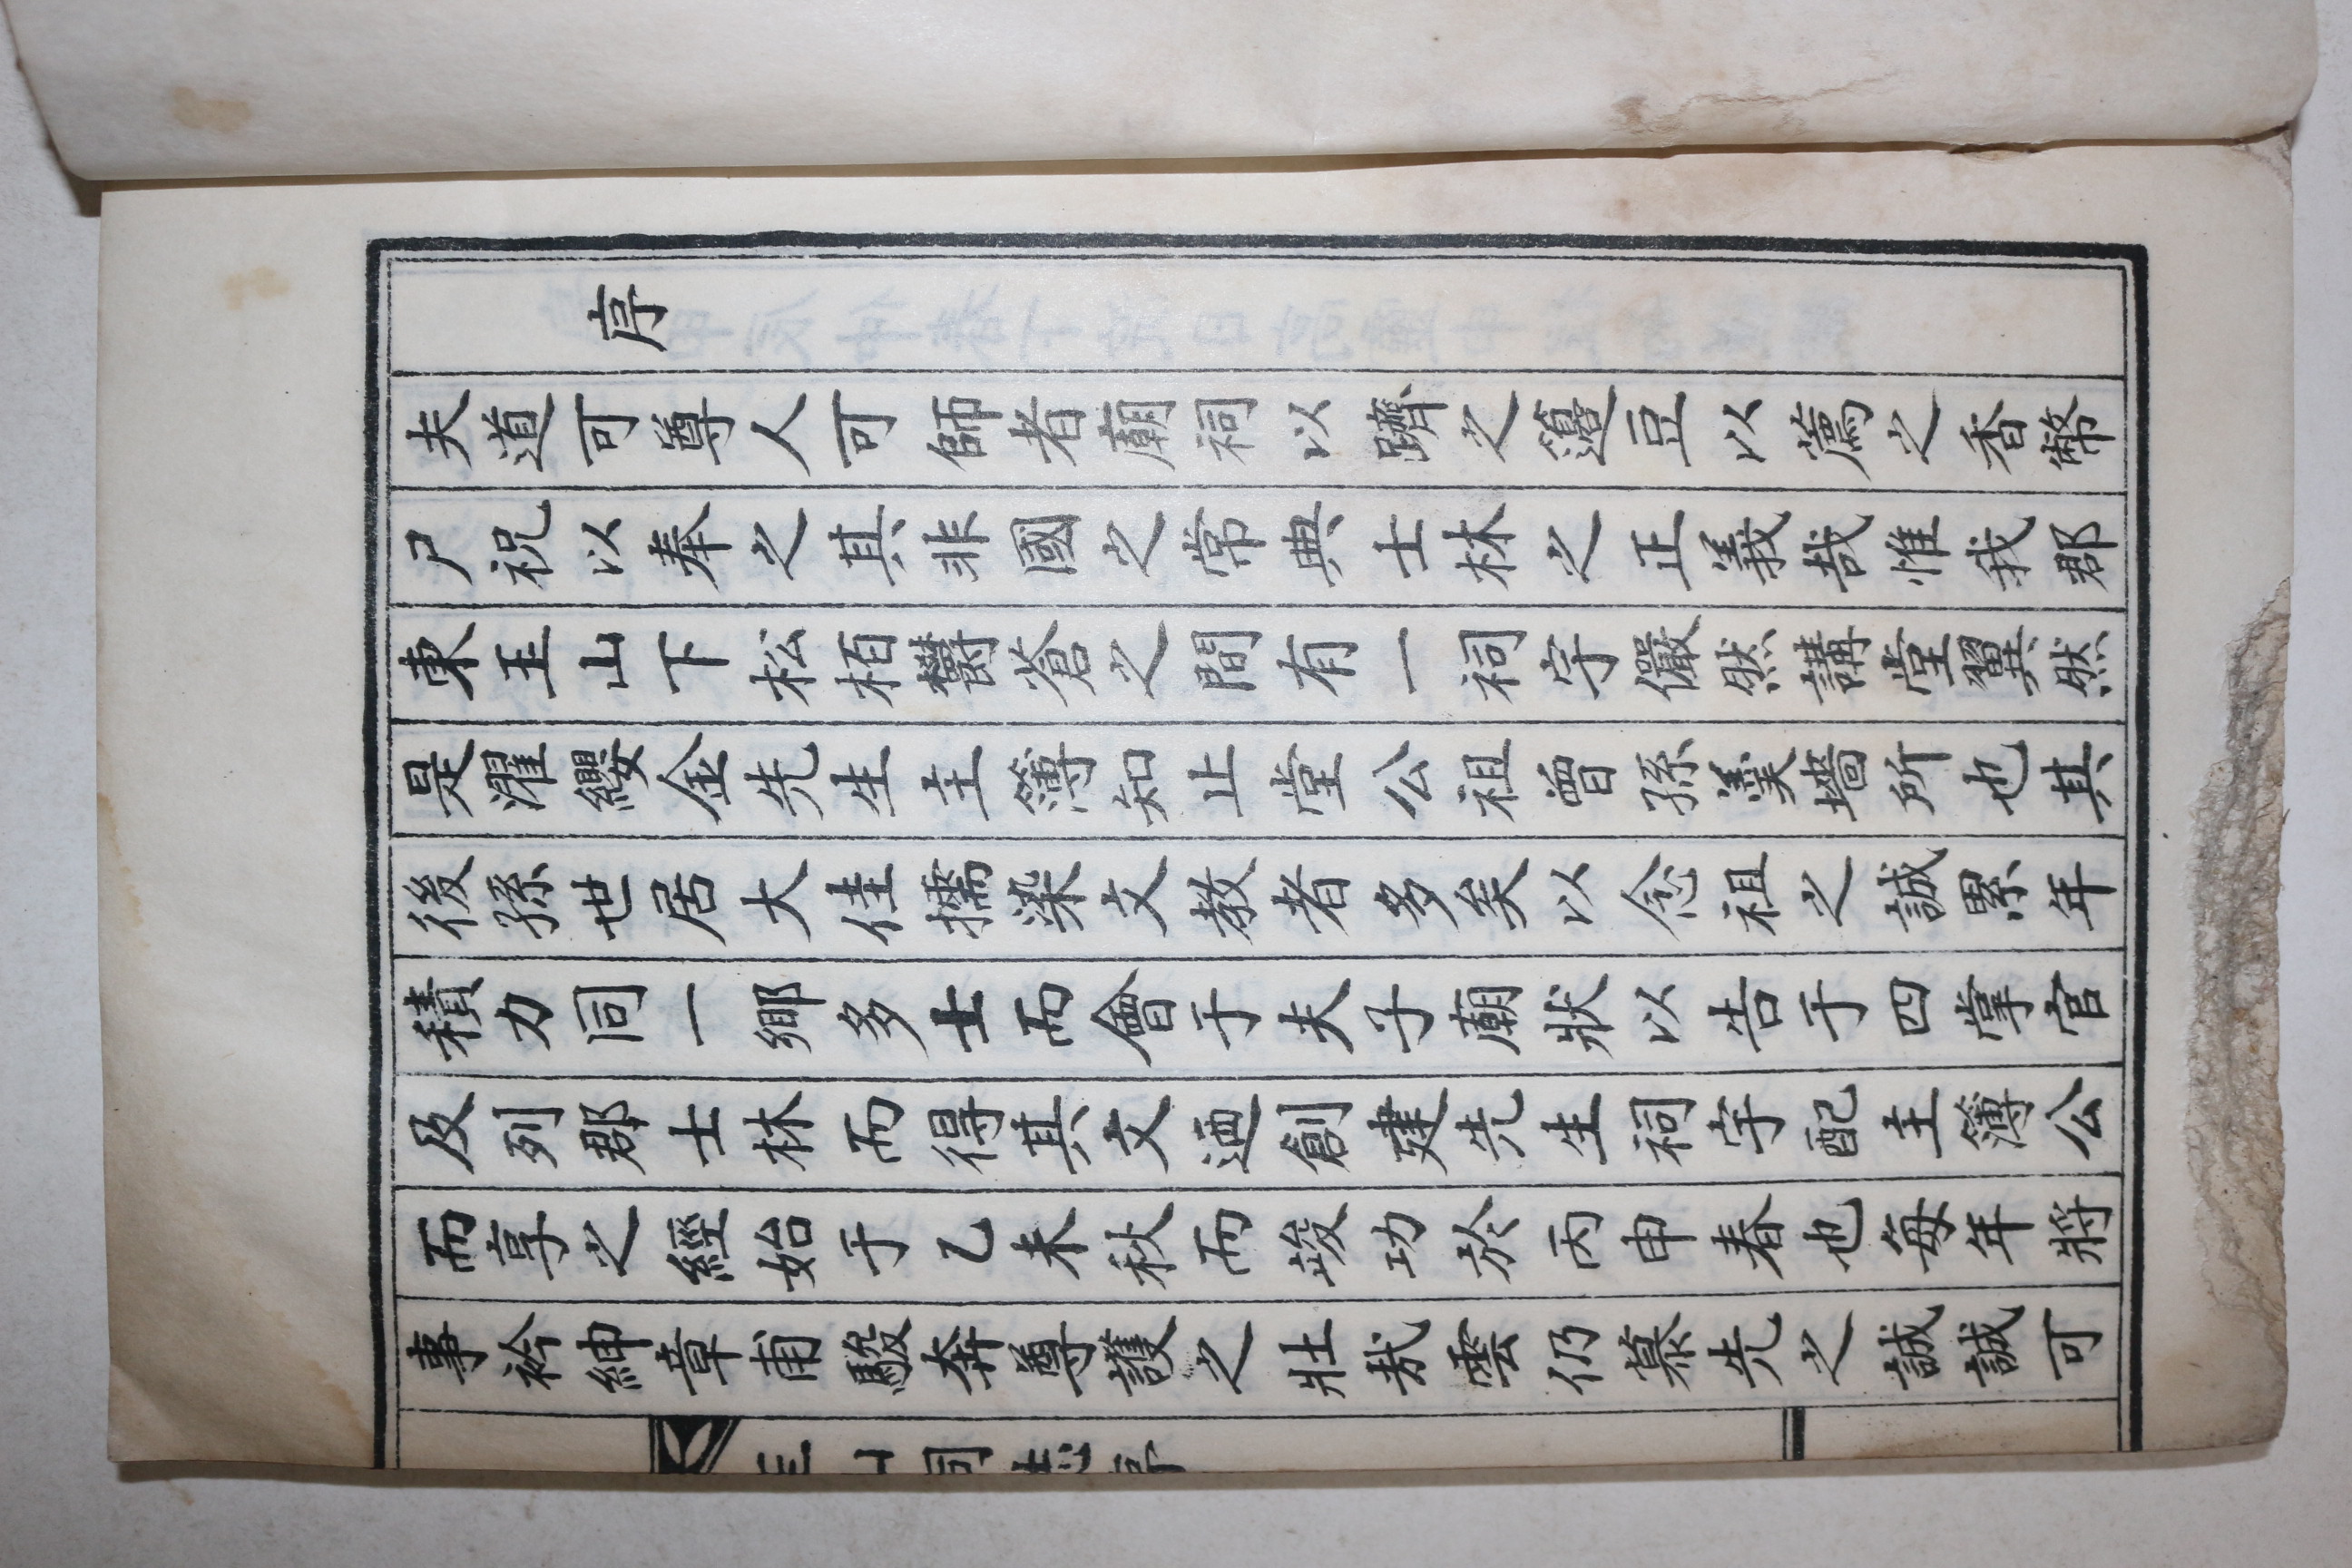 序
夫道可尊人可師者廟祠以躋之籩豆以薦之香幣
尸祝以奉之其非國之常典士林之正義哉惟我郡
東玉山下松栢欝蒼之間有一祠宇儼然講堂翼然
是濯纓金先生主簿知止堂公祖曾孫羹墻所也其
後孫世居大佳擩染文教者多矣以念祖之誠累年
積力同一鄉多士而會于夫子廟狀以告于四掌官
及列郡士林而得其文逈創建先生祠宇配主簿公
而享之經始于乙未秋而竣功於丙申春也每年將
事衿紳章甫駿奔尊護之壯哉雲仍慕先之誠誠可